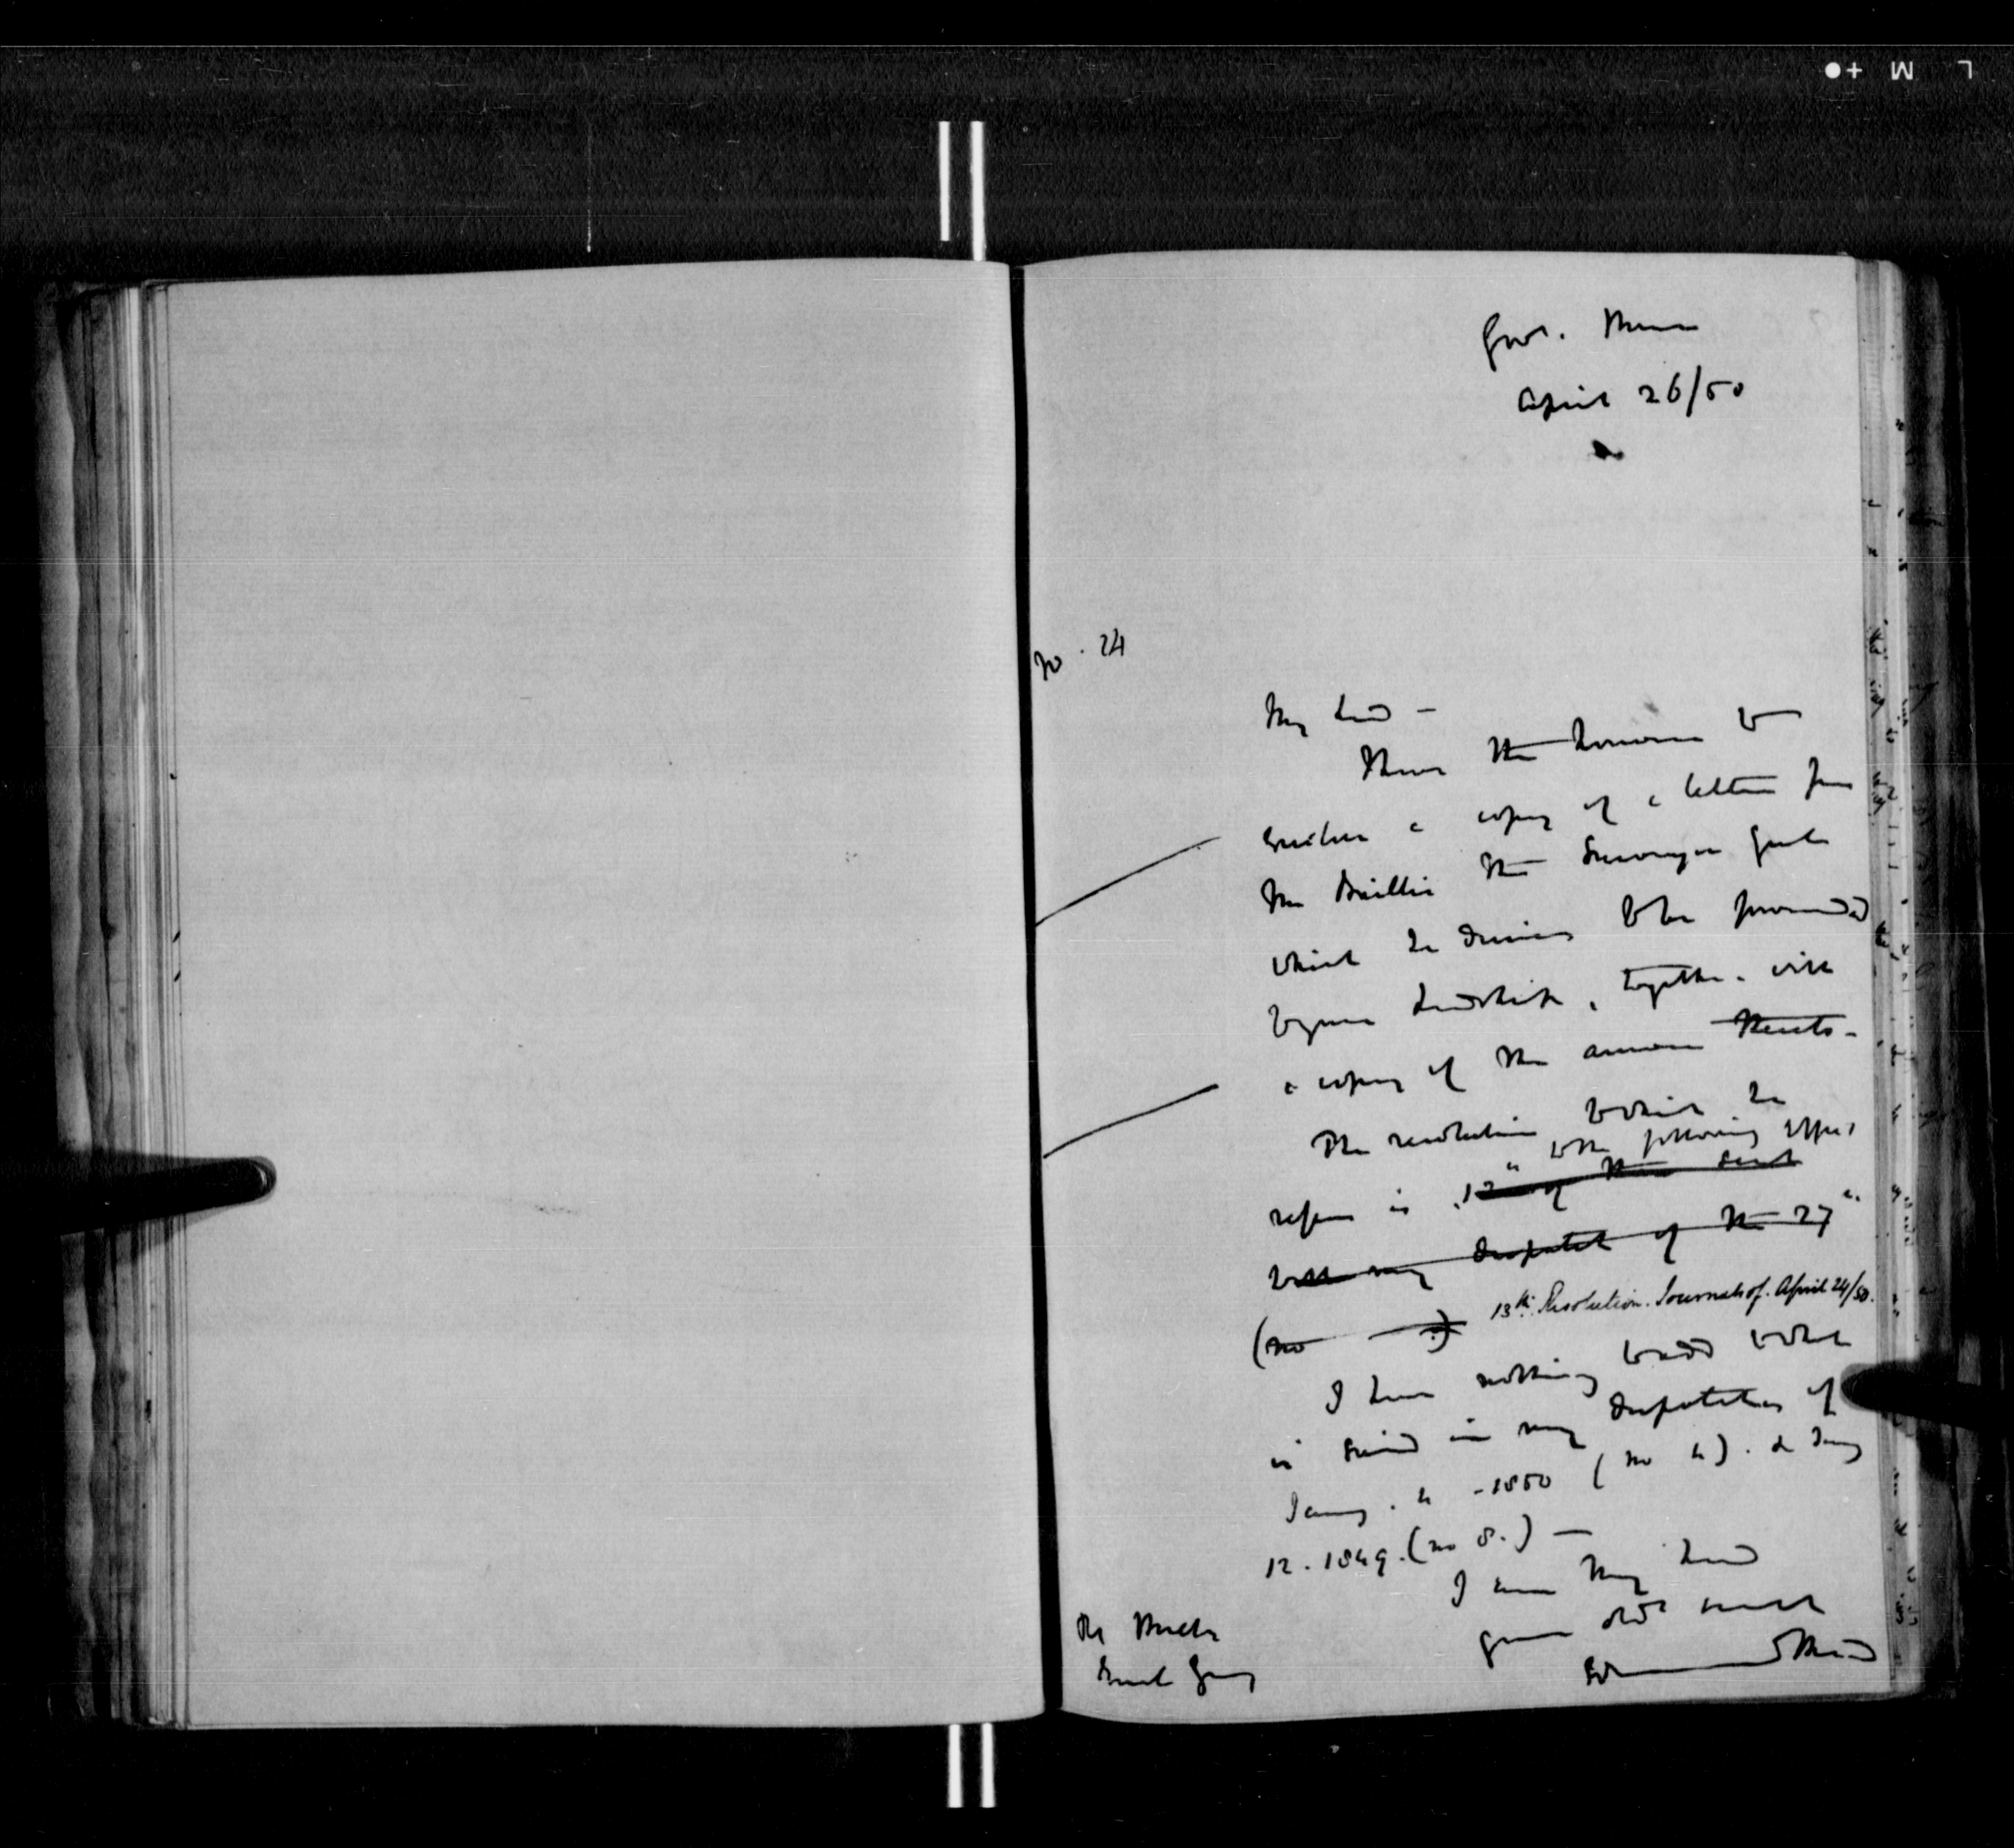 Govt. House
April 26/50
No. 24
My Lord -
I have the honour to
enclose a copy of a letter from
Mr Baillie the Surveyor Genl
which he desires to be forwarded
to your Lordship, together with
a copy of the answer thereto -
The resolution to which he
to the following effect
refers is 12 of those sent
with my despatch of the 27
(No )
13th Resolution. Journals of April 24/50.
I have nothing to add to what
is said in my despatches of
Jany. 4 - 1850 (No 4). &
12. 1849. (No 8.) -
I am My Lord
your obt servt
Edmund Head
Rt Honble
Earl Grey